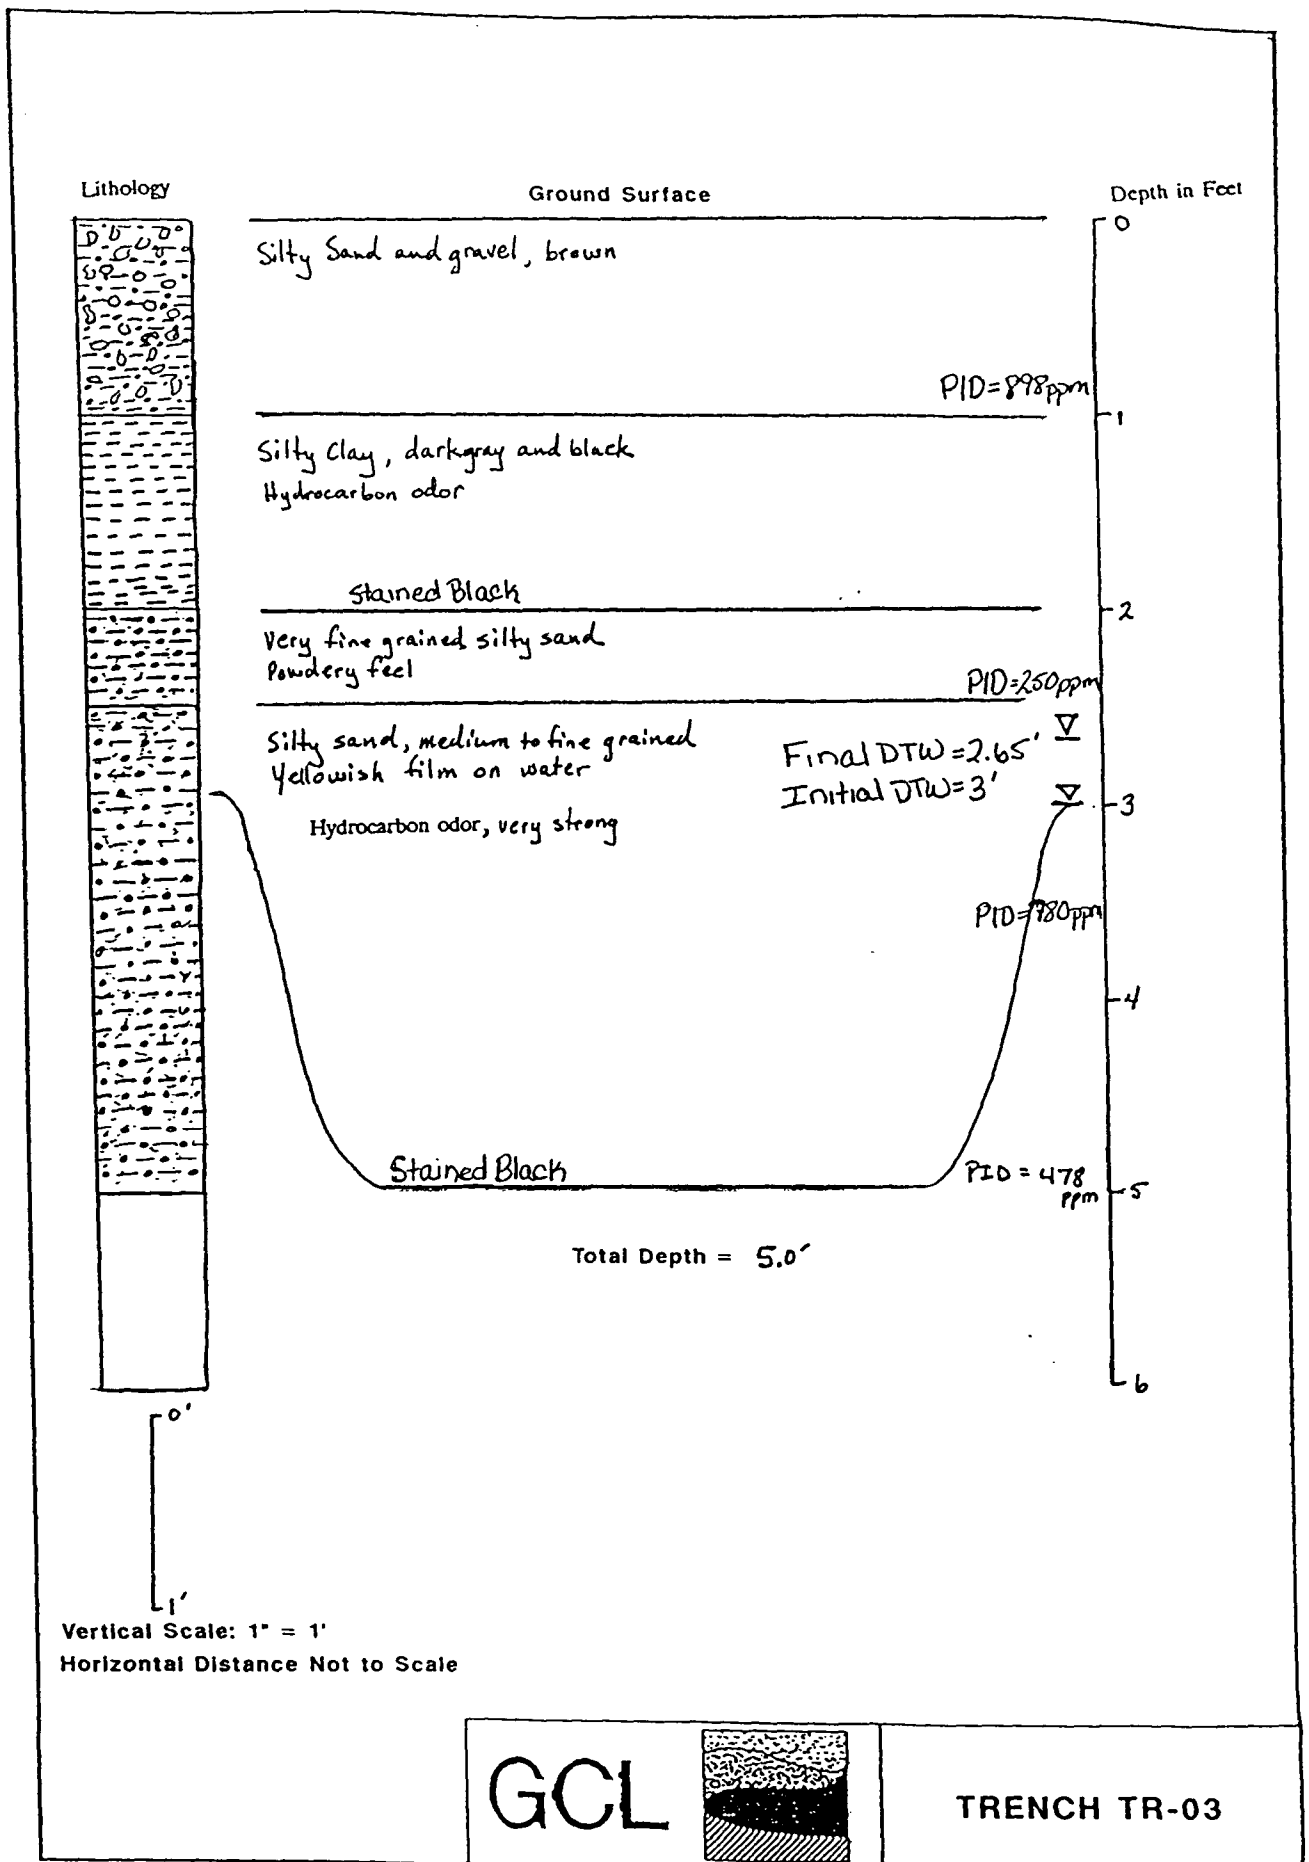 Lithology
Ground Surface
Depth in Feet
0
Silty Sand and gravel, brown
PID=898ppm
1
Silty Clay, darkgray and black
Hydrocarbon odor
Stained Black
2
Very fine grained silty sand
Powdery feel
PID=250ppm
Silty sand, medium to fine grained
Yellowish film on water
Final DTW=2.65'
Initial DTW=3'
3
Hydrocarbon odor, very strong
PID=780ppm
4
Stained Black
PID = 478
ppm
5
Total Depth = 5.0'
6
0'
1'
Vertical Scale: 1" = 1'
Horizontal Distance Not to Scale
GCL
TRENCH TR-03